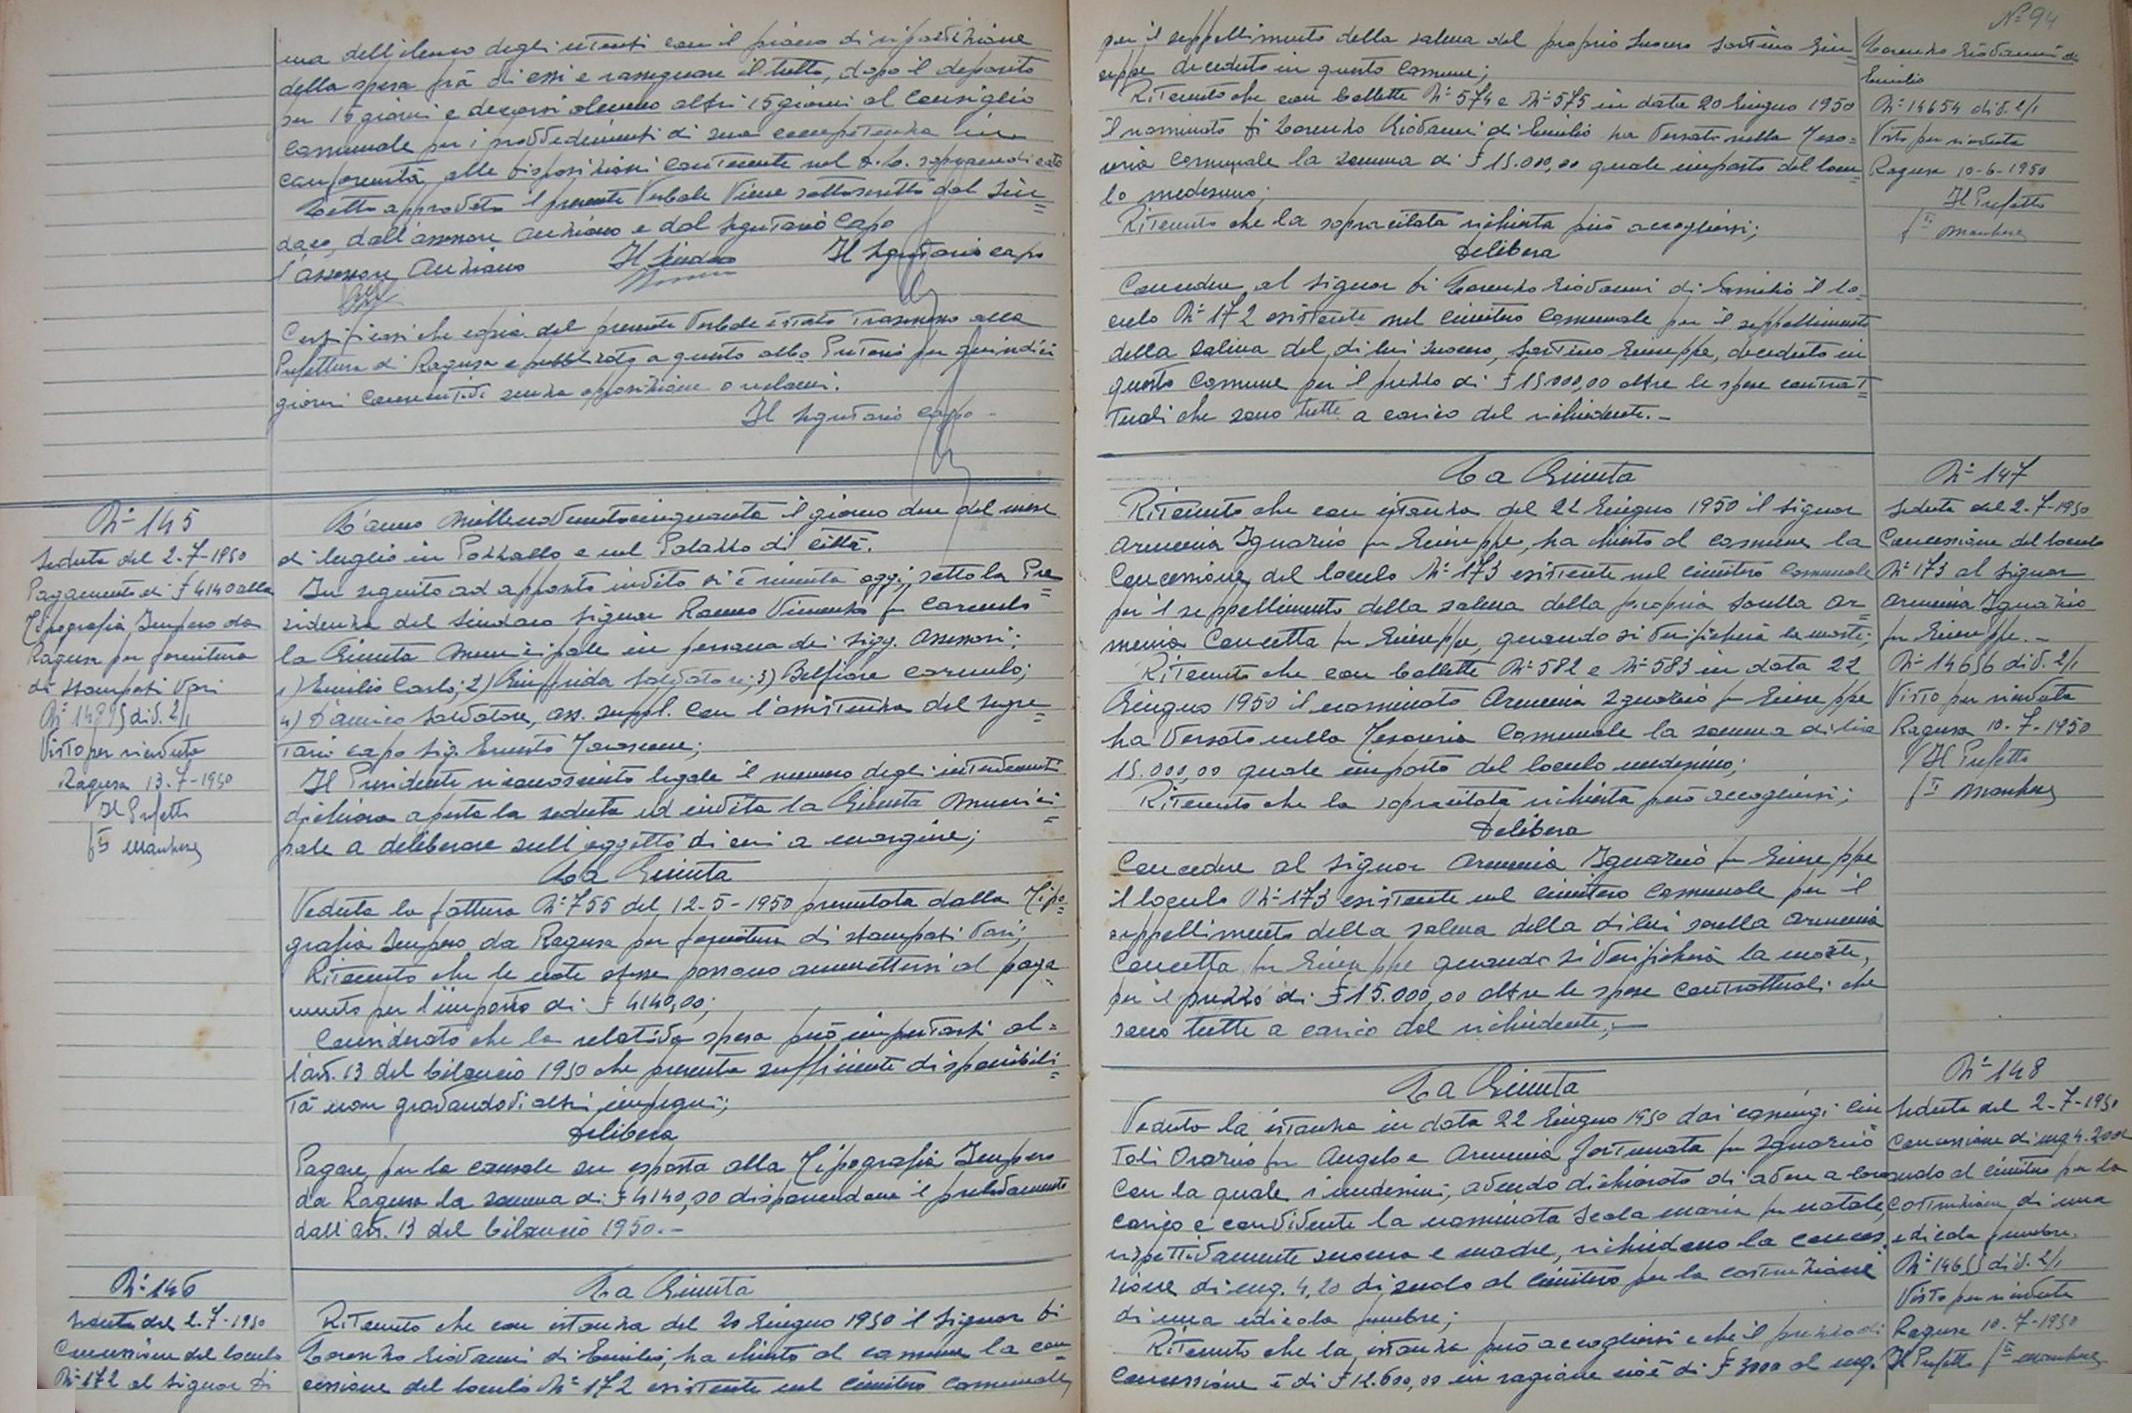 ma dell'elenco degli utenti con il piano di ripartizione
della spesa frà di essi e rassegnare il tutto, dopo il deposito
per 15 giorni e decorsi almeno altri 15 giorni al Consiglio
comunale per i provvedimenti di sua competenza in
conformità alle disposizioni contenute nel
Letto approvato il presente Verbale Viene sottoscritto dal Sin=
daco, dall'assessore anziano e dal Segretario Capo
l'assessore Anziano Il Sindaco Il Segretario capo
Certificasi che copia del presente Verbale è stato Trasmesso alla
Prefettura di Ragusa e pubblicato a questo albo Pretorio per quindici
giorni consecutivi senza opposizione o reclami.
Il Segretario capo -
N° 145
Seduta del 2-7-1950
Pagamento di £ 4140 alla
Tipografia Impero da
Ragusa per fornitura
di stampati Vari
div. 2/1
Visto per ricevuta
Ragusa 13-7-1950
Il Prefetto
L'anno Millenovecentocinquanta il giorno due del mese
di luglio in Pozzallo e nel Palazzo di città.
In seguito ad apposito invito si è riunita oggi, sotto la Pre=
sidenza del Sindaco Signor Vincenzo fu Carmelo
la Giunta Municipale in persona dei sigg. Assessori:
1) Emilio Carlo; 2) Giuffrida Salvatore; 3) Belfiore Carmelo;
4) D'amico Salvatore, ass. suppl. con l'assistenza del Segre=
tario capo sig. Ernesto
Il Presidente riconosciuto legale il numero degli intervenuti
dichiara aperta la seduta ed invita la Giunta Munici=
pale a deliberare sull'oggetto di cui a margine;
La Giunta
Veduta la fattura N° 755 del 12-5-1950 presentata dalla Tipo=
grafia Impero da Ragusa per fornitura di stampati Vari;
Ritenuto che le note stesse possono ammettersi al paga=
mento per l'importo di £ 4140,00;
Considerato che la relativa spesa può imputarsi al=
l'art. 13 del bilancio 1950 che presenta sufficiente disponibili=
tà non gravandovi altri impegni;
Delibera
Pagare per la causale su esposta alla Tipografia Impero
da Ragusa la somma di £ 4140,00 disponendone il prelevamento
dall'art. 13 del bilancio 1950.-
N° 146
Seduta del 2-7-1950
Concessione del loculo
N° 172 al Signor Di
La Giunta
Ritenuto che con istanza del 20 Giugno 1950 il Signor Di
Lorenzo Giovanni di Emilio, ha chiesto al comune la con=
cessione del loculo N° 172 esistente nel cimitero comunale,
N° 94
per il seppellimento della salma del proprio suocero Sortino Giu=
seppe deceduto in questo comune;
Ritenuto che con bollette N° 574 e N° 575 in data 20 Giugno 1950
il nominato Di Lorenzo Giovanni di Emilio ha Versato nella Teso=
reria Comunale la somma di £ 15.000,00 quale importo del locu=
lo medesimo;
Ritenuto che la sopracitata richiesta può accogliersi;
Delibera
Concedere al Signor Di Lorenzo Giovanni di Emilio il lo=
culo N° 172 esistente nel cimitero Comunale per il seppellimento
della salma del di lui suocero, Sortino Giuseppe, deceduto in
questo Comune per il prezzo di £ 15.000,00 oltre le spese contrat=
tuali che sono tutte a carico del richiedente.-
Lorenzo Giovanni di
Emilio
N° 14654 div. 2/1
Visto per ricevuta
Ragusa 10-6-1950
Il Prefetto
La Giunta
Ritenuto che con istanza del 22 Giugno 1950 il Signor
Armenia Ignazio fu Giuseppe, ha chiesto al comune la
Concessione del loculo N° 173 esistente nel cimitero comunale
per il seppellimento della salma della propria sorella Ar=
menia Concetta fu Giuseppe, quando si Verificherà la morte;
Ritenuto che con bollette N° 582 e N° 583 in data 22
Giugno 1950 il nominato Armenia Ignazio fu Giuseppe
ha Versato nella Tesoreria Comunale la somma di lire
15.000,00 quale importo del loculo medesimo;
Ritenuto che la sopracitata richiesta può accogliersi;
Delibera
Concedere al Signor Armenia Ignazio fu Giuseppe
il loculo N° 173 esistente nel cimitero comunale per il
seppellimento della salma della di lui sorella Armenia
Concetta fu Giuseppe quando si Verificherà la morte,
per il prezzo di £ 15.000,00 oltre le spese contrattuali che
sono tutte a carico del richiedente.-
N° 147
Seduta del 2-7-1950
Concessione del loculo
N° 173 al Signor
Armenia Ignazio
fu Giuseppe.-
N° 14656 div. 2/1
Visto per ricevuta
Ragusa 10-7-1950
Il Prefetto
La Giunta
Veduta la istanza in data 22 Giugno 1950 dai coniugi
Orazio fu Angelo e Armenia Fortunata fu Ignazio
con la quale i medesimi, avendo dichiarato di avere a loro
carico e convivente la nominata Scala Maria fu Natale,
rispettivamente suocera e madre, richiedono la conces=
sione di mq. 4,20 di suolo al cimitero per la costruzione
di una edicola funebre;
Ritenuto che la istanza può accogliersi e che il prezzo di
concessione è di £ 12.600,00 in ragione cioè di £ 3000 al mq.
N° 148
Seduta del 2-7-1950
Concessione di mq 4.20 di
suolo al cimitero per la
costruzione di una
edicola funebre.
N° 14655 div. 2/1
Visto per ricevuta
Ragusa 10-7-1950
Il Prefetto